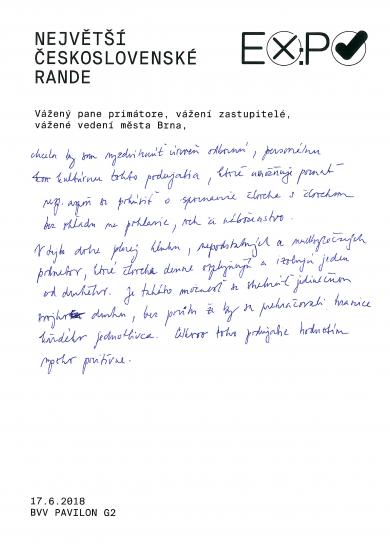 NEJVĚTŠÍ
ČESKOSLOVENSKÉ
RANDE
EXPO
Vážený pane primátore, vážení zastupitelé,
vážené vedení města Brna,
chcela by som vyzdvihnúť úroveň odbornú, personálnu
kultúrnu tohto podujatia, ktoré umožňuje poznať
resp. aspoň sa pokúsiť o spoznanie človeka s človekom
bez ohľadu na pohlavie, rok či náboženstvo.
V dobe plnej hluku, nepodstatných a nadbytočných
podnetov, ktoré človeka denne a izolujú jeden
od druhého. Je takáto možnosť sa stretnúť jedinečnou
druhu, bez pocitu že by sa prekračovali hranice
každého jednotlivca. Celkovo toto podujatie hodnotím
veľmi pozitívne.
17.6.2018
BVV PAVILON G2